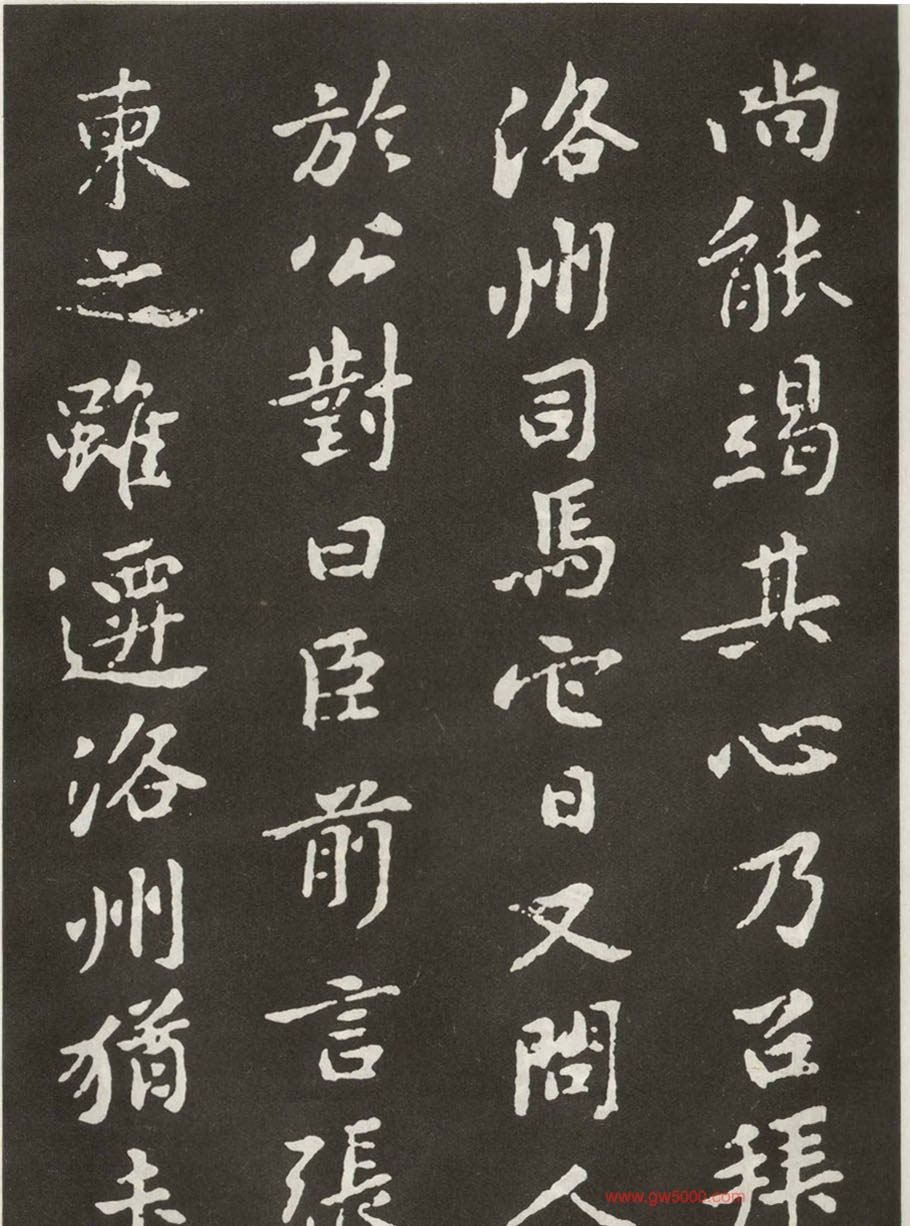 尚能竭其心乃召拜
洛州司馬它日又問人
於公對曰臣前言張
柬之雖遷洛州猶未
www.gw5000.com